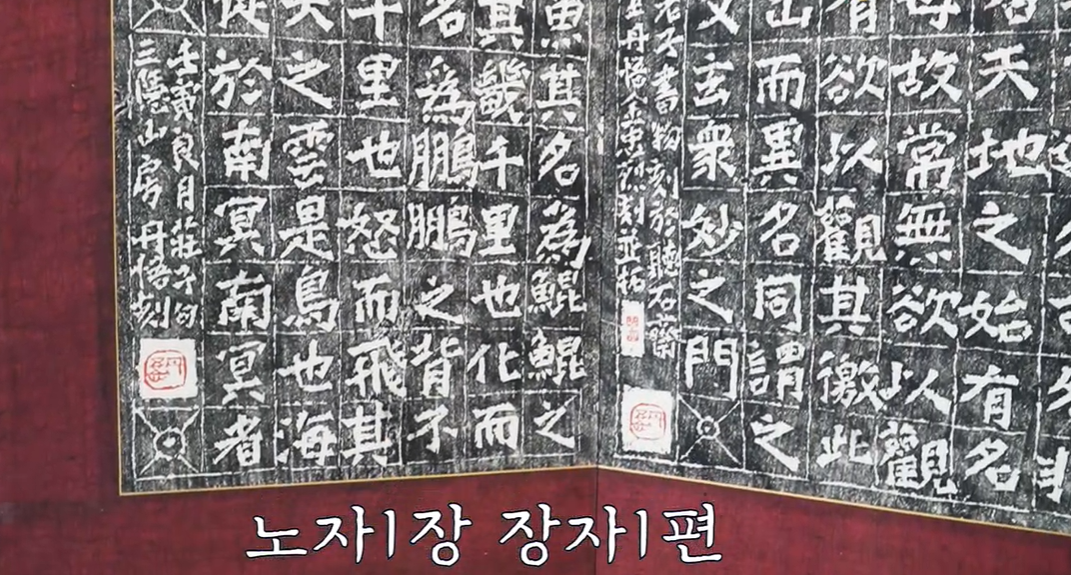 天地之始有名
母故常無欲以觀
有欲以觀其徼此
出而異名同謂之
又玄衆妙之門
刻於聽石齋
丹悟金東烈刻並拓
魚其名爲鯤鯤之
其幾千里也化而
名爲鵬鵬之背不
千里也怒而飛其
天之雲是鳥也海
徙於南冥南冥者
壬寅良月莊子句
三隱山房丹悟刻
노자1장 장자1편